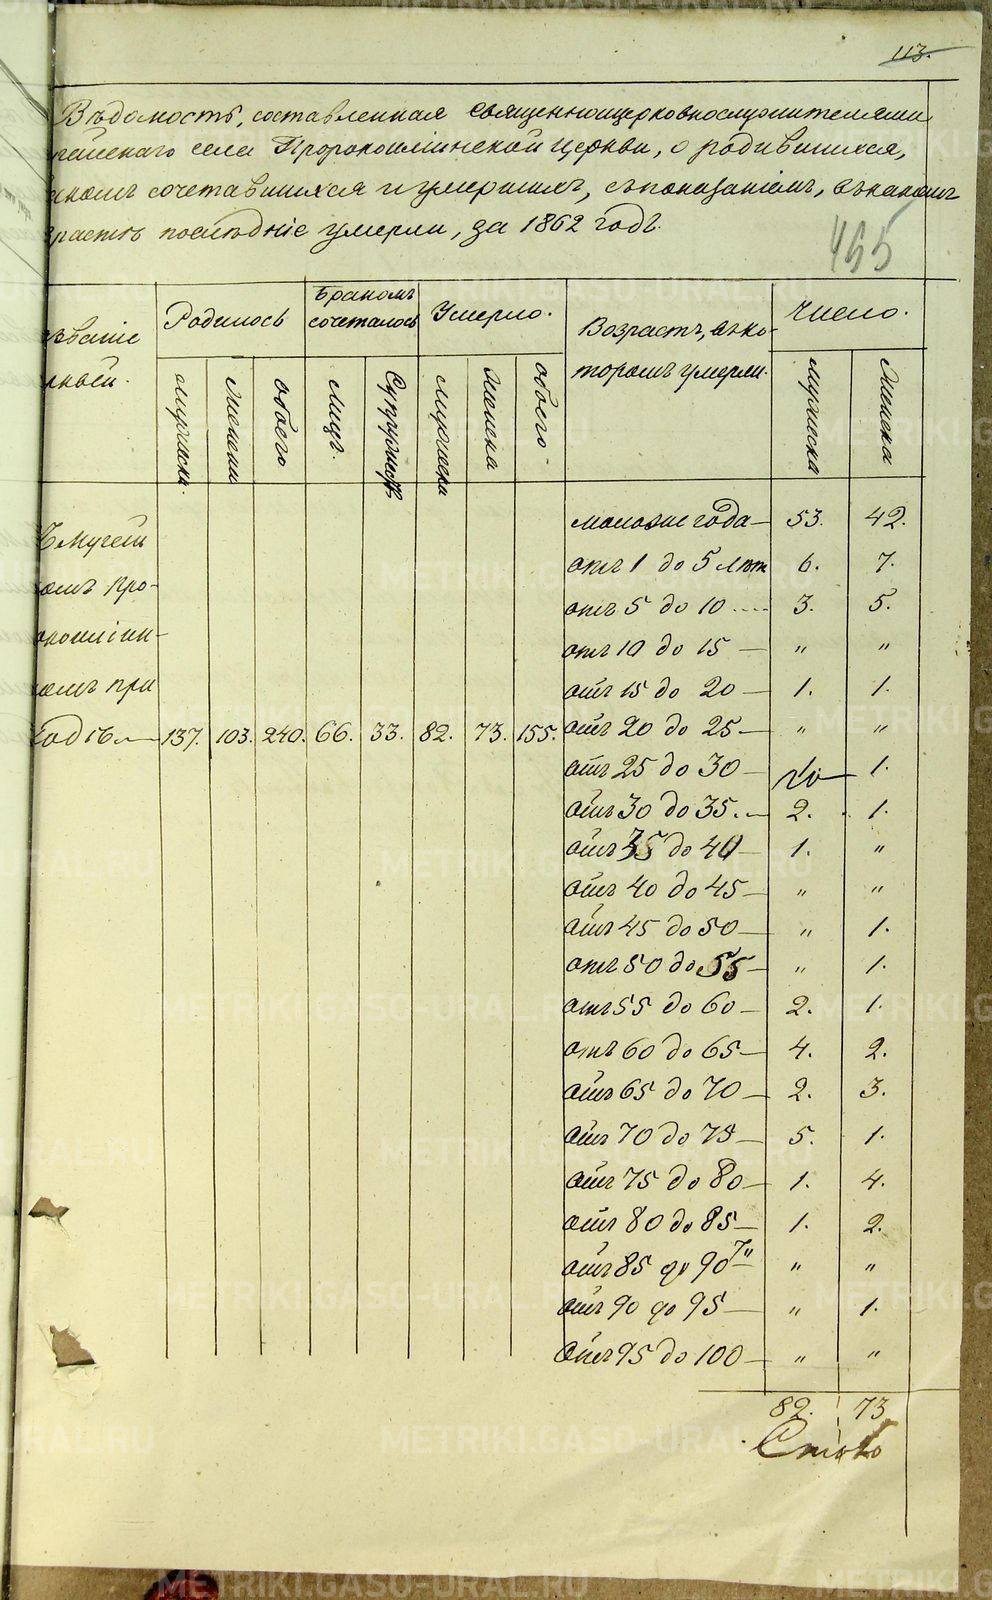 113.
Вѣдомость, составленная священноцерковнослужителями
села Пророкоильинской церкви, о родившихся,
сочетавшихся и умершихъ, съ показаніемъ, въ какомъ
послѣдніе умерли, за 1862 годъ.
455
Родилось
Бракомъ сочеталось
Умерло.
Возрастъ, въ ко-
торомъ умерли.
Число.
мужеска.
женска
обоего
лицъ.
Супружествъ
мужеска
женска
обоего.
мужеска
женска
моложе года — 53. 42.
отъ 1 до 5 лѣтъ 6. 7.
отъ 5 до 10 .... 3. 5.
отъ 10 до 15 — " "
отъ 15 до 20 — 1. 1.
137. 103. 240. 66. 33. 82. 73. 155. отъ 20 до 25 — " "
отъ 25 до 30 — 1.
отъ 30 до 35. — 2. 1.
отъ 35 до 40 — 1. "
отъ 40 до 45 — " "
отъ 45 до 50 — " 1.
отъ 50 до 55 — " 1.
отъ 55 до 60 — 2. 1.
отъ 60 до 65 — 4. 2.
отъ 65 до 70 — 2. 3.
отъ 70 до 75 — 5. 1.
отъ 75 до 80 — 1. 4.
отъ 80 до 85 — 1. 2.
отъ 85 до 90 — " "
отъ 90 до 95 — " 1.
отъ 95 до 100 — " "
82. 73
METRIKI.GASO-URAL.RU